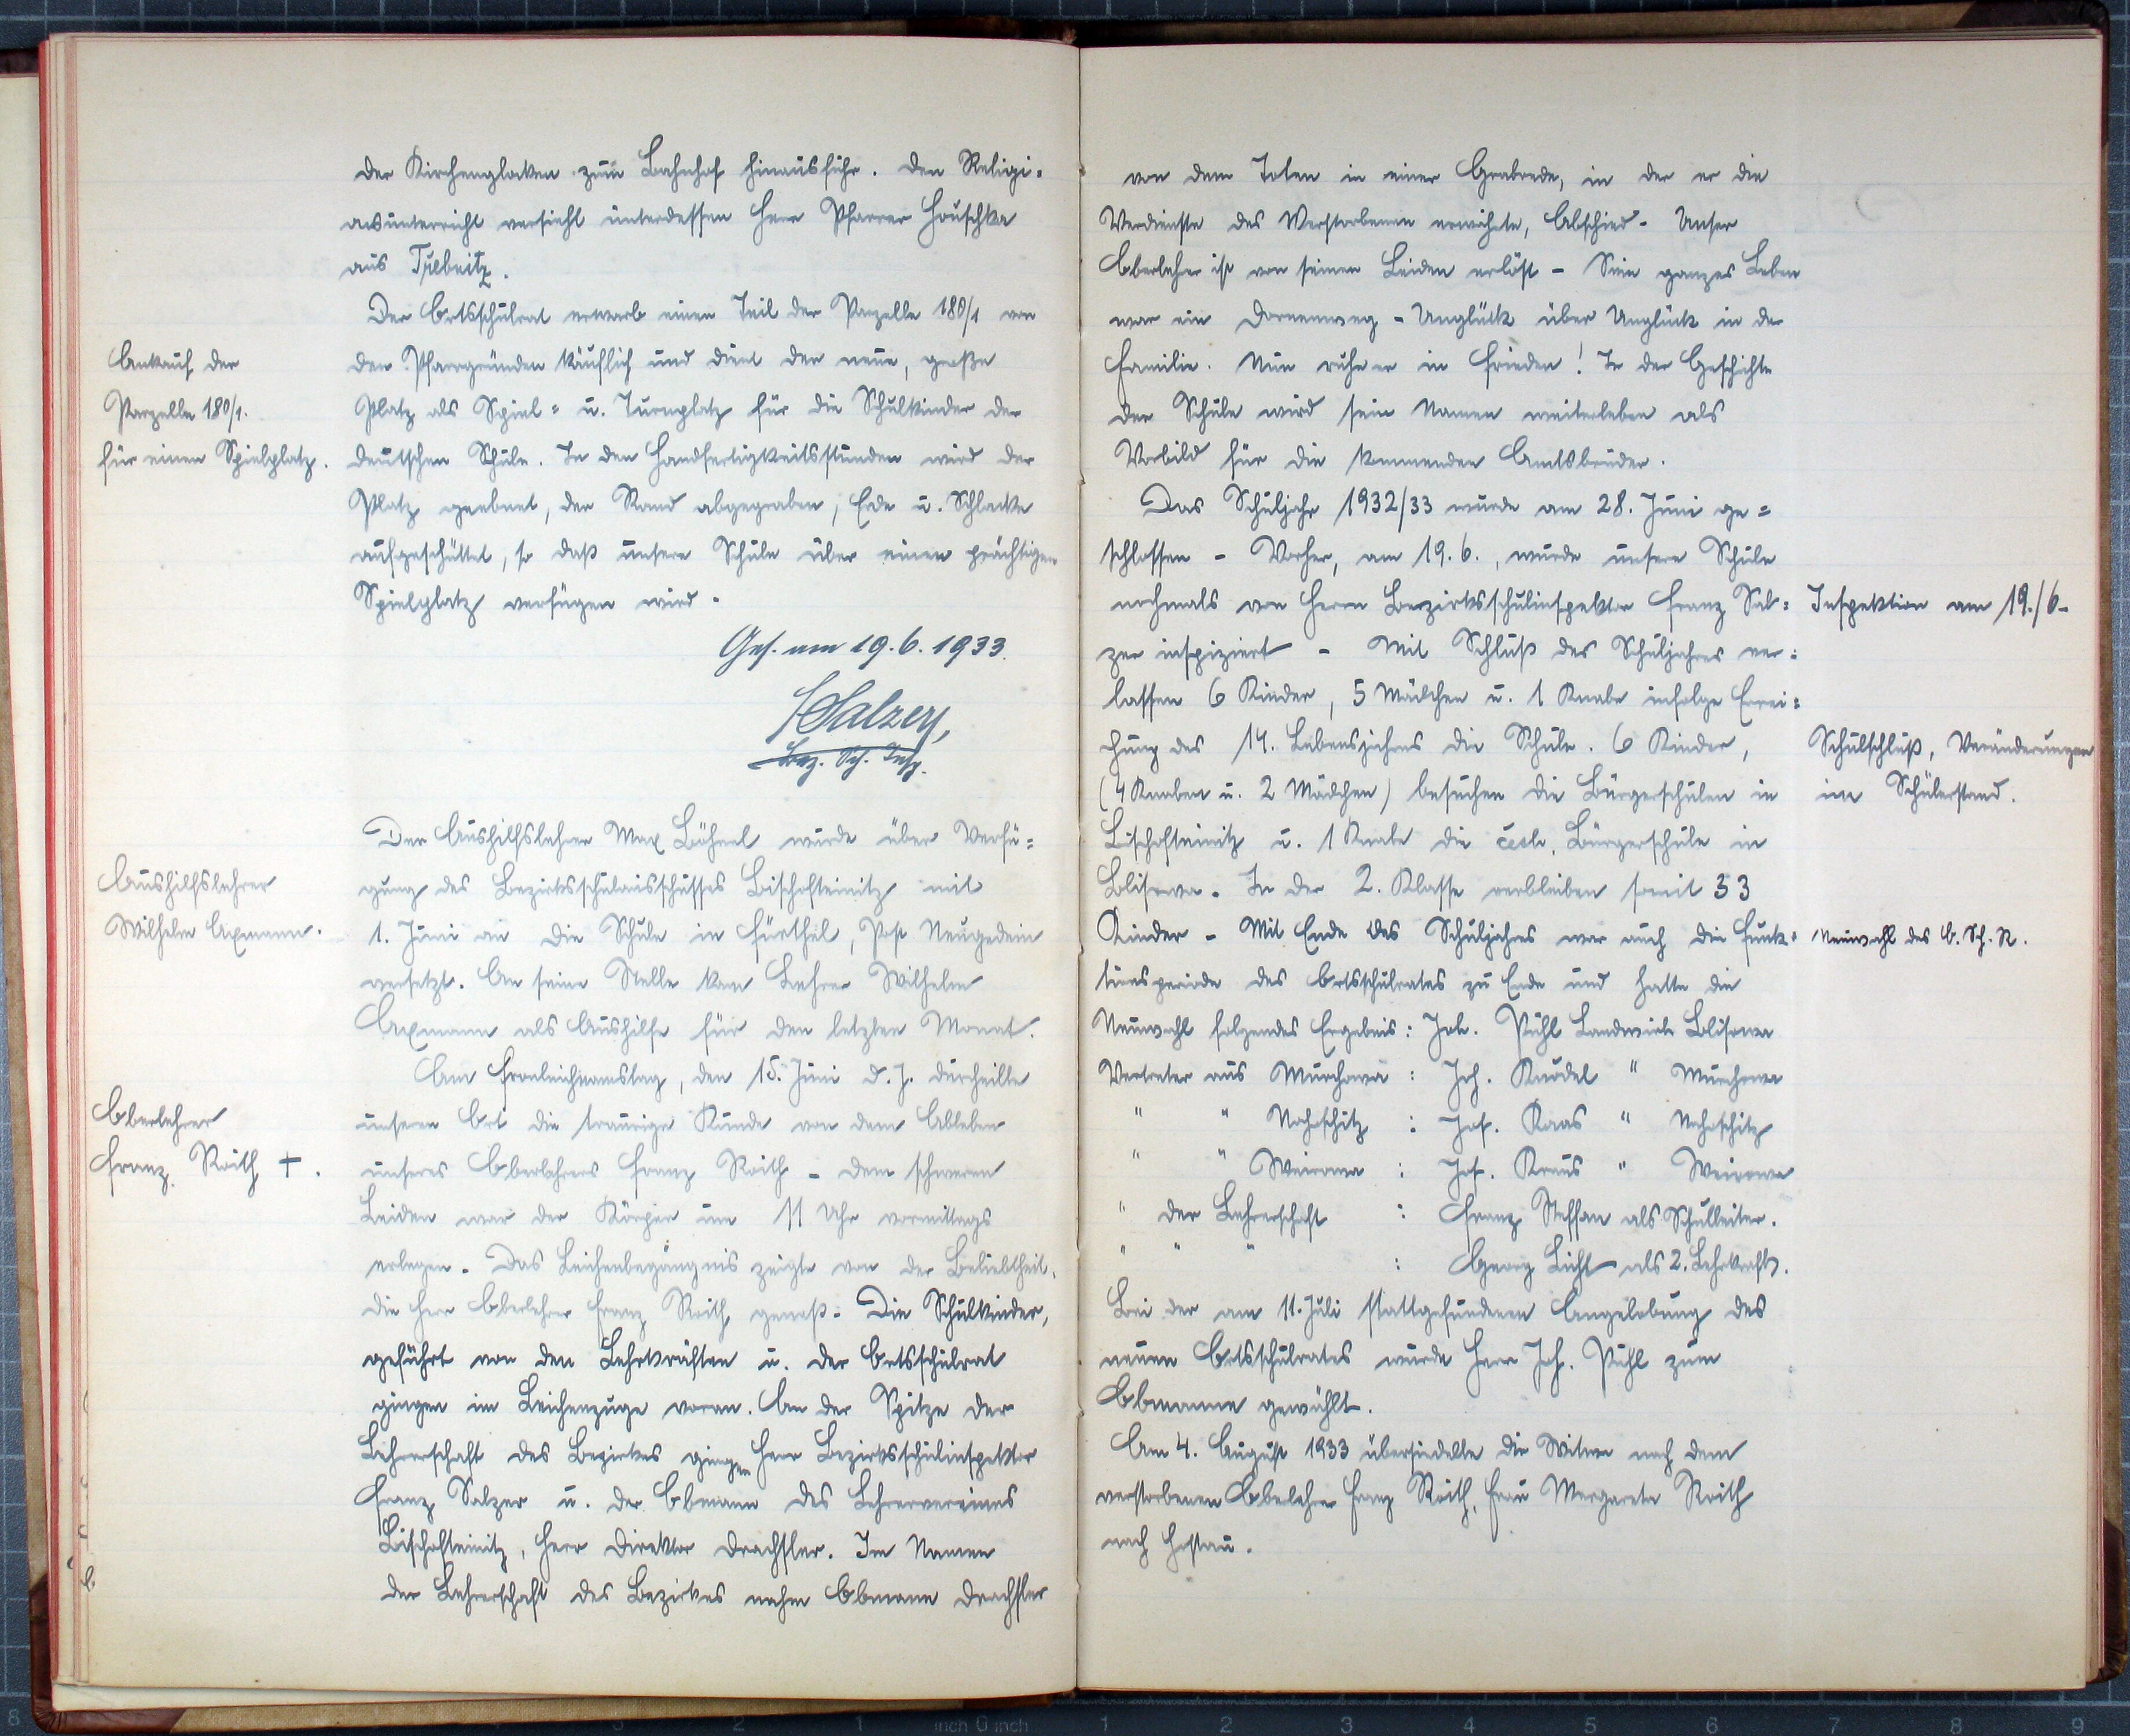 der Kirchenglocken zum Bahnhof hinausfuhr. Den Religi=
onsunterricht versieht unterdessen Herr Pfarrer Houschka
aus Trebnitz.
Der Ortsschulrat erwarb einen Teil der Parzelle 180/1 von
Ankauf der
Parzelle 180/1.
für einen Spielplatz.
den Pfarrgründen käuflich und dient der neue, große
Platz als Spiel= u. Turnplatz für die Schulkinder der
deutschen Schule. In den Handfertigkeitsstunden wird der
Platz geebnet, der Rand abgegraben, Erde u. Schlacke
aufgeschüttet, so daß unsere Schule über einen prächtigen
Spielplatz verfügen wird.
Ges. am 19.6.1933.
FSalzer,
Bez. Sch. Insp.
Der Aushilfslehrer Max Böhnel wurde über Verfü=
Aushilfslehrer
Wilhelm Axmann.
gung des Bezirksschulausschusses Bischofteinitz mit
1. Juni an die Schule in Fürthel, Post Neugedein
versetzt. An seine Stelle kam Lehrer Wilhelm
Axmann als Aushilfe für den letzten Monat.
Am Fronleichnamstag, den 15. Juni d. J. durcheilte
Oberlehrer
Franz Roith †.
unseren Ort die traurige Kunde von dem Ableben
unseres Oberlehrers Franz Roith - dem schweren
Leiden war der Körper um 11 Uhr vormittags
erlegen. Das Leichenbegängnis zeigte von der Beliebtheit,
die Herr Oberlehrer Franz Roith genoß. Die Schulkinder,
geführt von den Lehrkräften u. der Ortsschulrat
gingen im Leichenzuge voran. An der Spitze der
Lehrerschaft des Bezirkes gingen Herr Bezirksschulinspektor
Franz Salzer u. der Obmann des Lehrervereines
Bischofteinitz, Herr Direktor Drachsler. Im Namen
der Lehrerschaft des Bezirkes nahm Obmann Drachsler
von dem Toten in einer Grabrede, in der er die
Verdienste des Verstorbenen erwähnte, Abschied. Unser
Oberlehrer ist von seinen Leiden erlöst - Sein ganzes Leben
war ein Dornenweg - Unglück über Unglück in der
Familie. Nun ruhe er in Frieden! In der Geschichte
der Schule wird sein Namen weiterleben als
Vorbild für die kommenden Amtsbrüder.
Das Schuljahr 1932/33 wurde am 28. Juni ge=
schlossen - Vorher, am 19.6., wurde unsere Schule
nochmals von Herrn Bezirksschulinspektor Franz Sal=
Inspektion am 19./6.
zer inspiziert - Mit Schluß des Schuljahres ver=
lassen 6 Kinder, 5 Mädchen u. 1 Knabe infolge Errei=
chung des 14. Lebensjahres die Schule. 6 Kinder,
Schulschluß, Veränderungen
im Schülerstand.
(4 Knaben u. 2 Mädchen) besuchen die Bürgerschulen in
Bischofteinitz u. 1 Knabe die čech. Bürgerschule in
Blisowa. In der 2. Klasse verbleiben somit 33
Kinder - Mit Ende des Schuljahres war auch die Funk=
Neuwahl des O. Sch. R.
tionsperiode des Ortsschulrates zu Ende und hatte die
Neuwahl folgendes Ergebnis: Joh. Pühl Landwirt Blisowa
Vertreter aus Murchowa : Joh. Knödel " Murchowa
" " Nahoschitz : Jos. Kaas " Nahoschitz
" " Weirowa : Jos. Kraus " Weirowa
" der Lehrerschaft : Franz Steffan als Schulleiter.
" " " : Georg Licht als 2. Lehrkraft.
Bei der am 11. Juli stattgefundenen Angelobung des
neuen Ortsschulrates wurde Herr Joh. Pühl zum
Obmanne gewählt.
Am 4. August 1933 übersiedelte die Witwe nach dem
verstorbenen Oberlehrer Franz Roith, Frau Margareta Roith
nach Hostau.